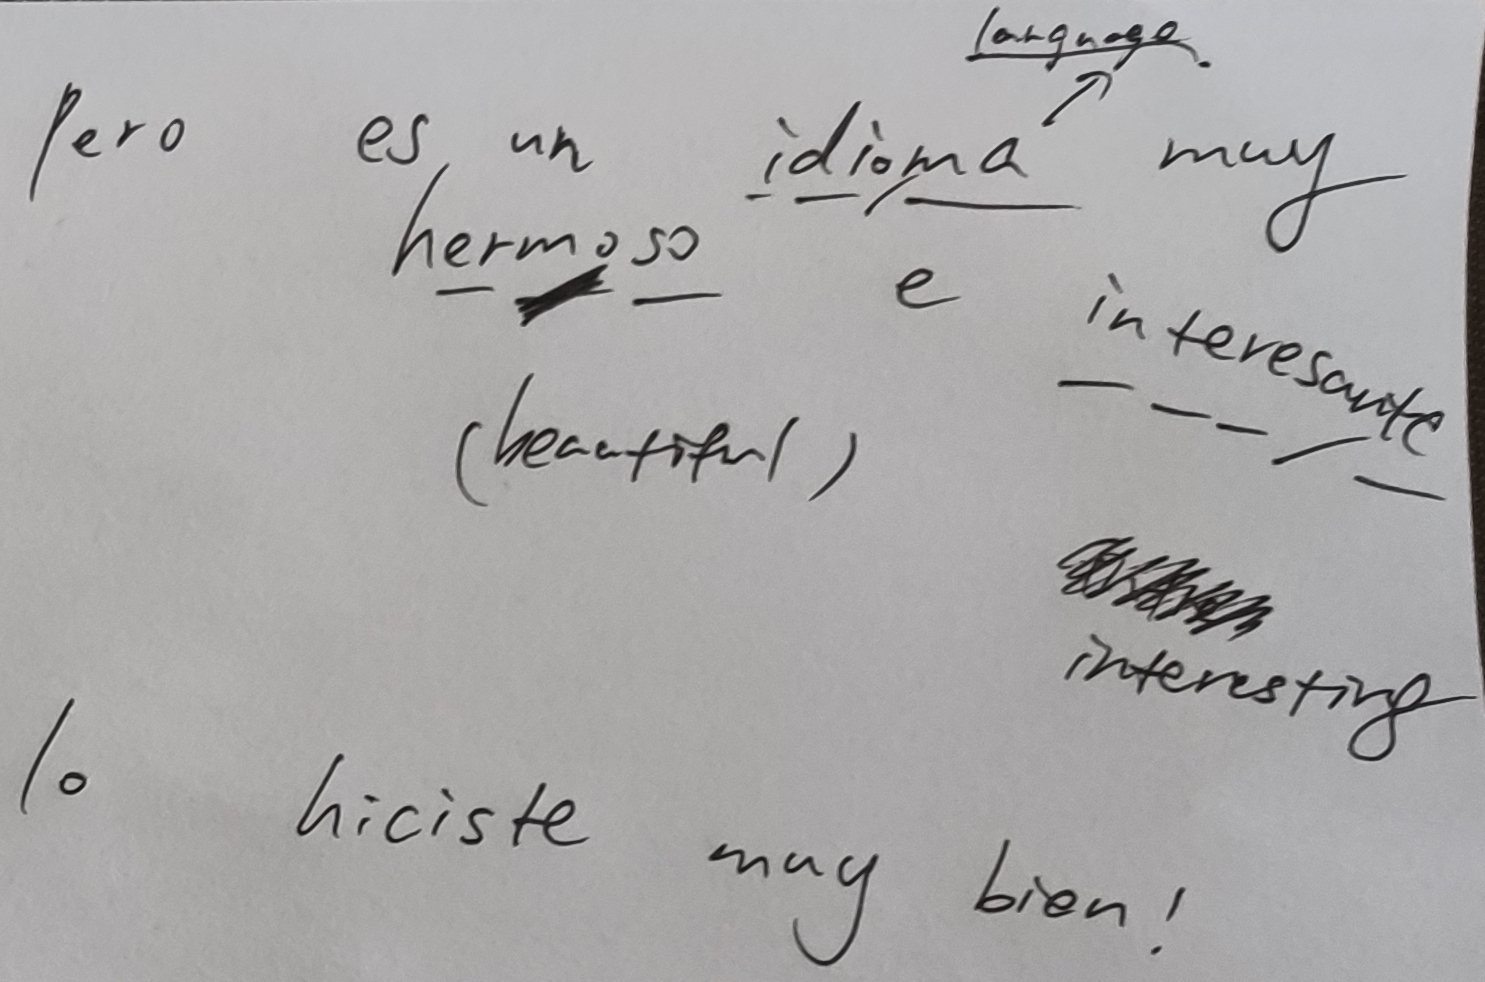 language.
Pero es un idioma muy
hermoso e interesante
(beautiful)
interesting
lo hiciste muy bien!